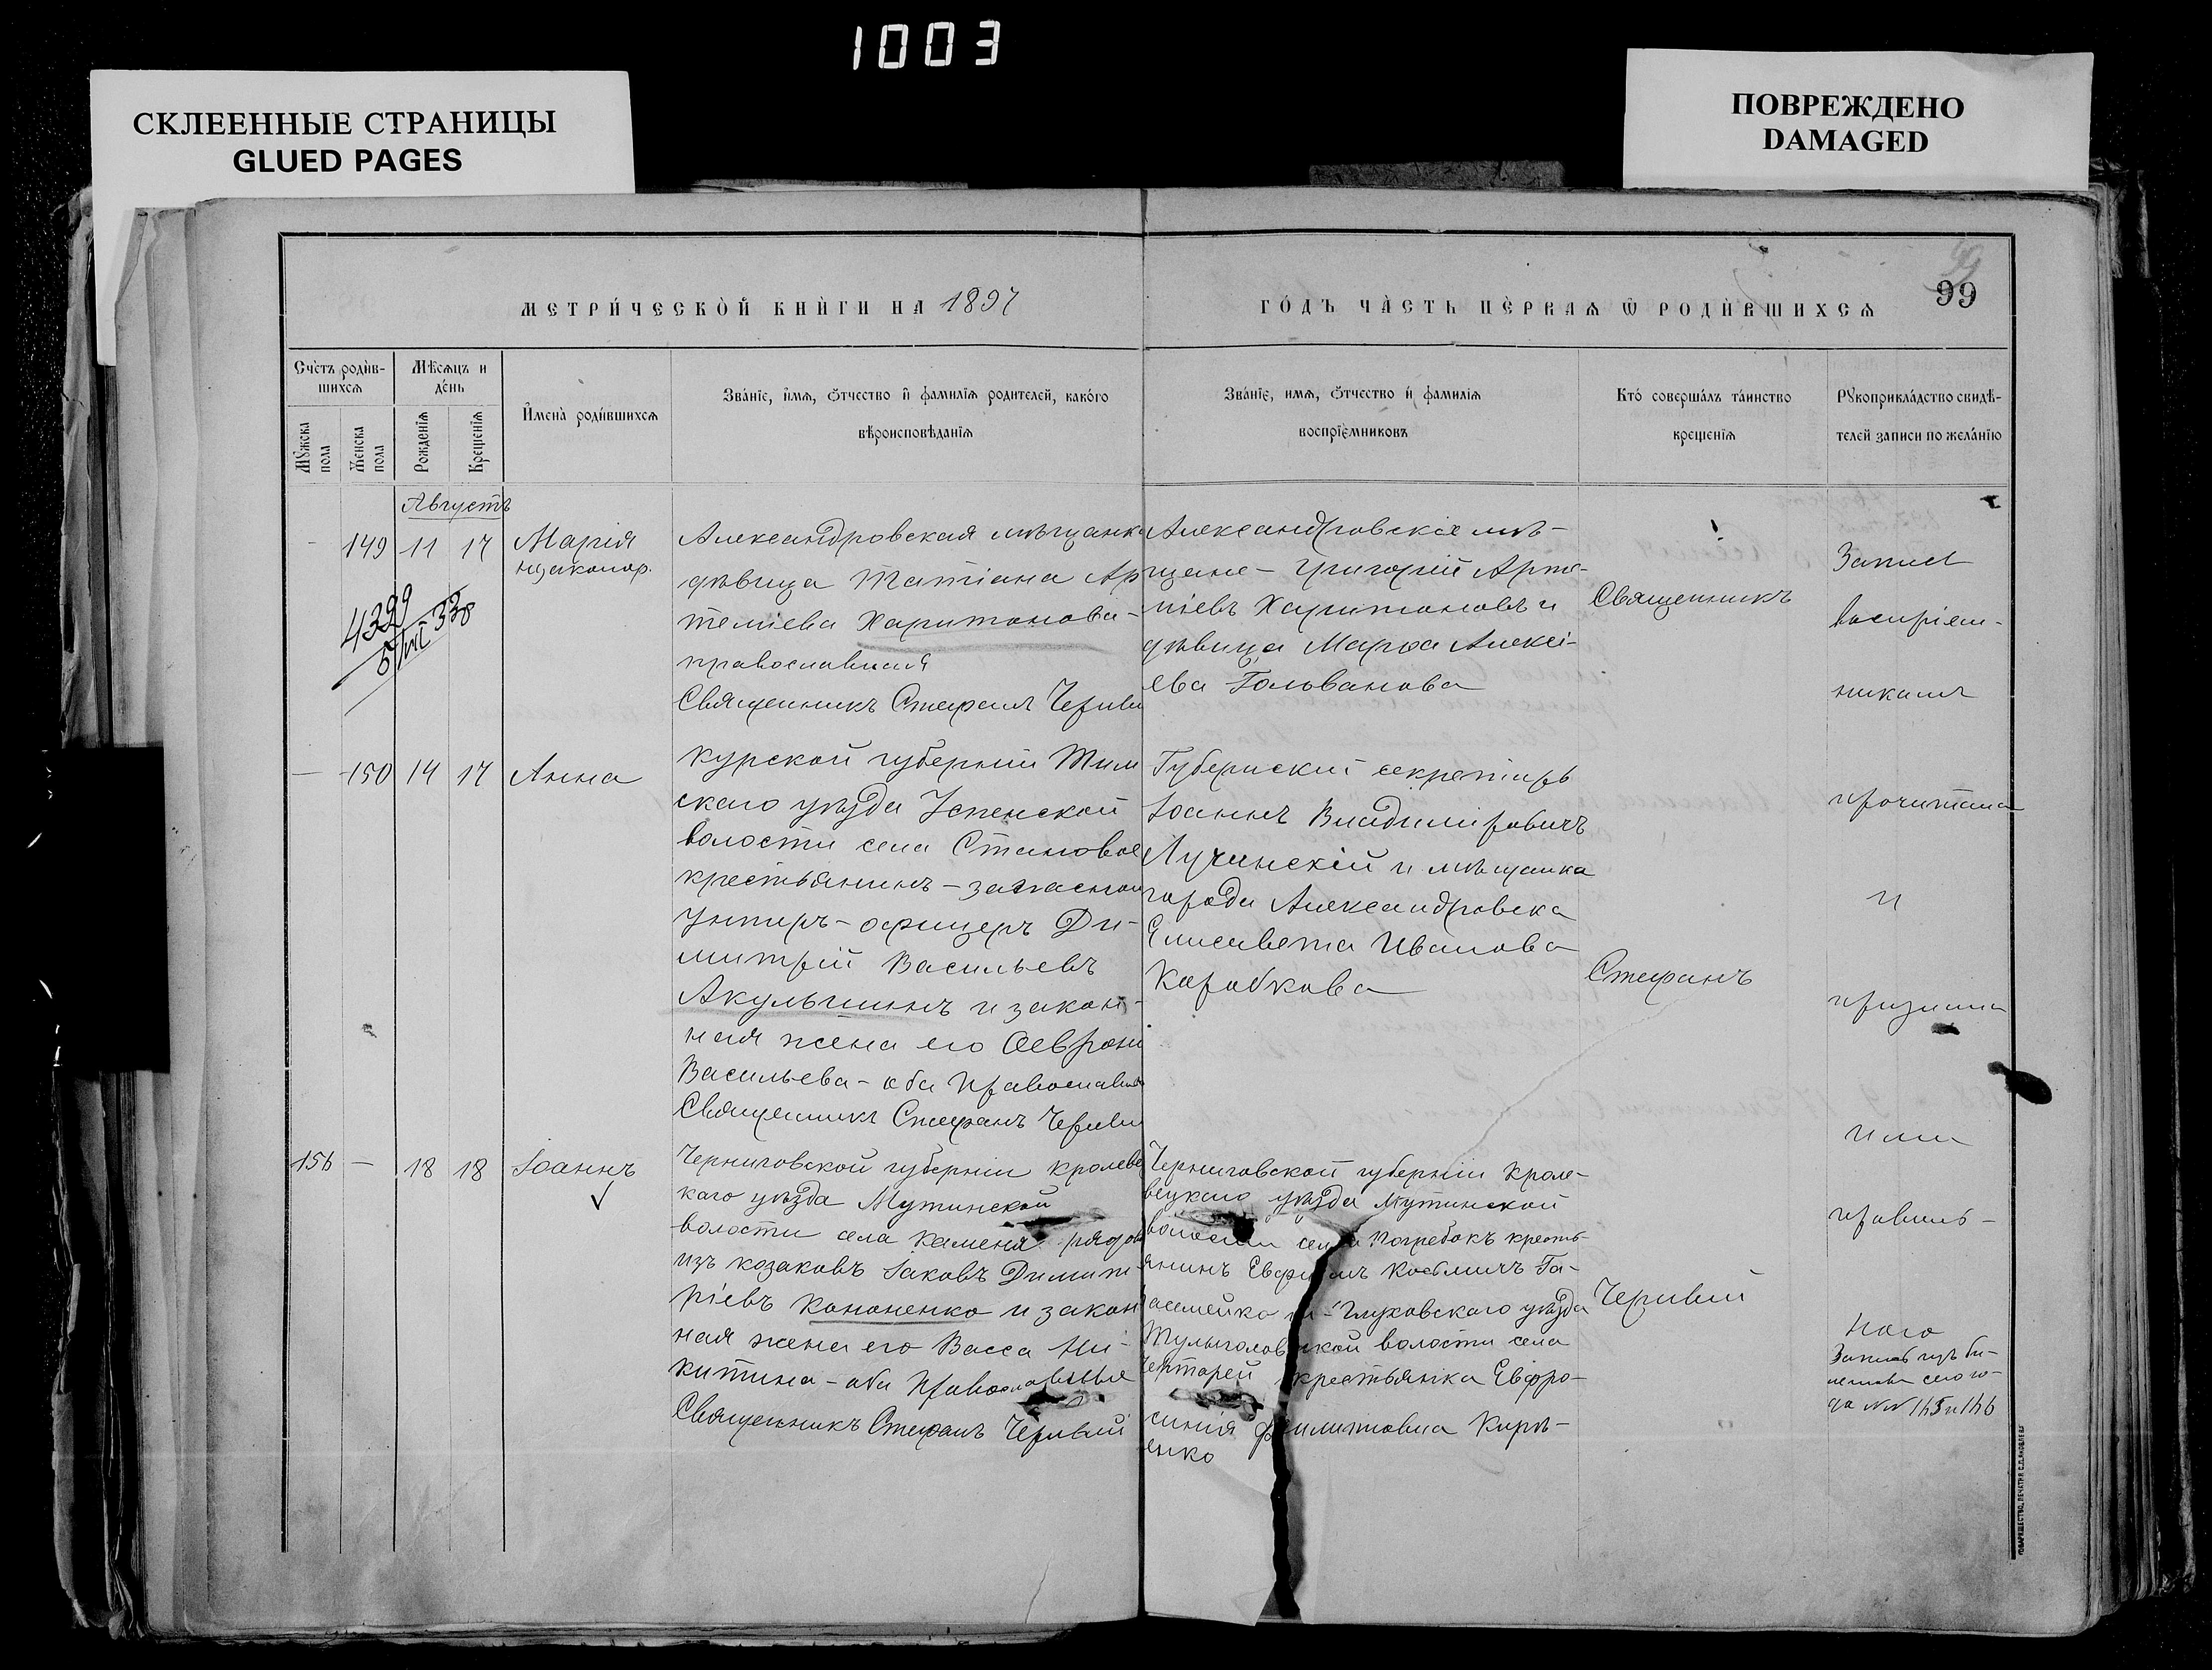 1003
СКЛЕЕННЫЕ СТРАНИЦЫ
GLUED PAGES
ПОВРЕЖДЕНО
DAMAGED
МЕТРИ́ЧЕСКОЙ КНИ́ГИ НА 1897
ГО́ДЪ ЧА́СТЬ ПЕ́РВАѦ Ѿ РОДИ́ВШИХСѦ
99
Сче́тъ роди́в-
шихсѧ
Мѣ́сѧцъ и
де́нь
Мꙋ́жска
пола
Же́нска
пола
Рожде́нїѧ
Креще́нїѧ
И҆мена̀ роди́вшихсѧ
Зва́нїе, и҆́мѧ, ѻ҆́тчество и҆ фами́лїѧ роди́телей, како́гѡ
вѣроисповѣ́данїѧ
Зва́нїе, и҆́мѧ, ѻ҆́тчество и҆ фами́лїѧ
воспрїе́мниковъ
Кто́ соверша́лъ та́инство
креще́нїѧ
Рꙋкоприкла́дство свидѣ́-
телей за́писи по жела́нїю
Августъ
149 11 17 Марія
незаконор.
4399
5/VII-338
Александровская мѣщанка
дѣвица Татіана Ар
теміева Харитонова-
православная
Священникъ Стефанъ Черви
Александровскіе мѣ-
щане - Григорій Арте-
міевъ Харитоновъ и
дѣвица Марѳа Алексі-
ева Гольванова
— 150 14 17 Анна
Курской губерніи Тим
скаго уѣзда Успенской
волости села Становое
крестьянинъ - запасной
унтеръ-офицеръ Ди-
митрій Васильевъ
Акульшинъ и закон-
ная жена его Ѳеврони
Васильева - оба православн
Священникъ Стефанъ Черви
Губернскій секретарь
Іоаннъ Владиміровичъ
Лучинскій и мѣщанка
города Александровска
Елисавета Иванова
Коробкова
156 — 18 18 Іоаннъ
Черниговской губерніи Кролеве
каго уѣзда Мутинской
волости села Каменя рядов
изъ козаковъ Іаковъ Димит
ріевъ Кононенко и закон
ная жена его Васса Ни-
китина - оба православные
Священникъ Стефанъ Червий
Черниговской губерніи Кроле-
вецкаго уѣзда Мутинской
волости села Погребокъ кресть-
янинъ Евфимъ Косьмичъ Га-
Глуховскаго уѣзда
Тулыголовской волости села
крестьянка Евфро-
синія
енко
Священникъ
Стефанъ
Червий
Запись
воспріем-
никамъ
прочитана
и
признана
ими
правиль-
ного